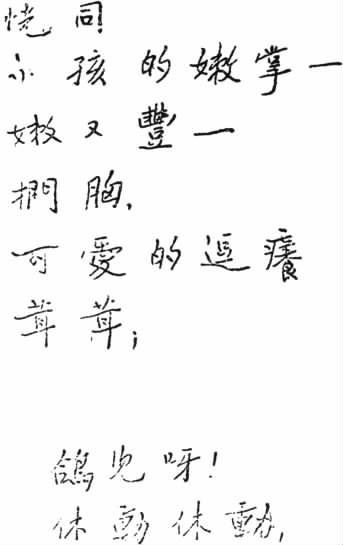 恍同
小孩的嫩掌一
嫩又豐一
捫胸,
可愛的逗癢
茸茸;
鴿兒呀!
休動休動,